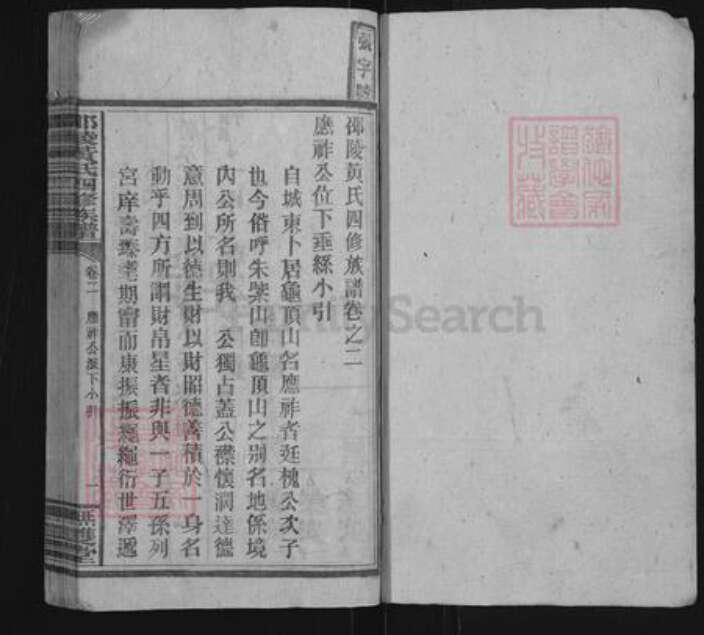 張字號
邵陵黃氏四修族譜卷之二
應祚公位下垂絲小引
自城東卜居龜頂山名應祚者廷槐公次子
也今俗呼朱檗山卽龜頂山之別名地係境
內公所名則我 公獨占蓋公襟懷濶達德
意周到以德生財以財昭德善積於一身名
動乎四方所謂財帛星者非與一子五孫列
宮庠壽臻耄期富而康振振繩繩衍世澤遞
邵陵黃氏四修族譜
卷二 應祚公派下小引
一
FamilySearch